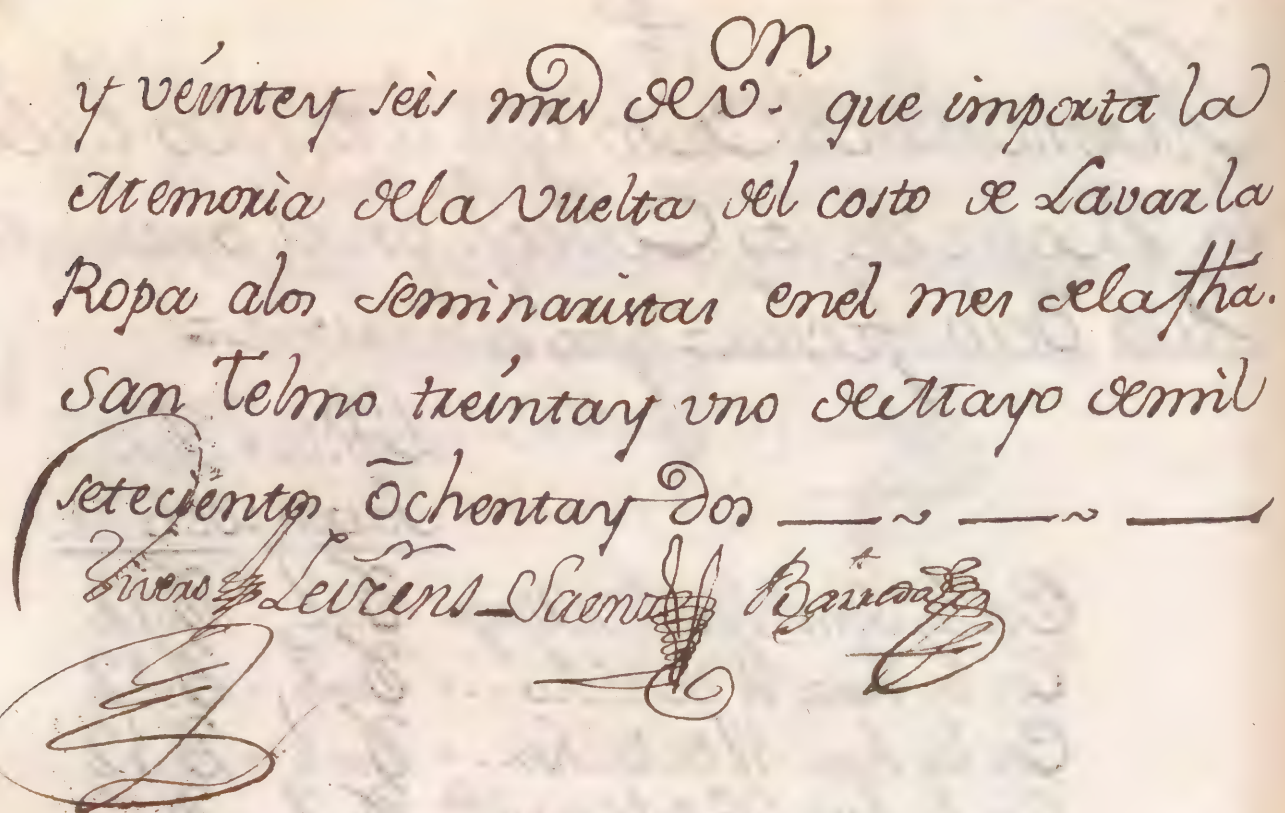 y veintey seis mrs de v.on que importa la
Memoria dela vuelta del costo de Lavar la
Ropa alos Seminaristas enel mes dela fha.
San Telmo treintay uno de Mayo demil
setecientos ochentay dos
Vivero Saenz Barreda